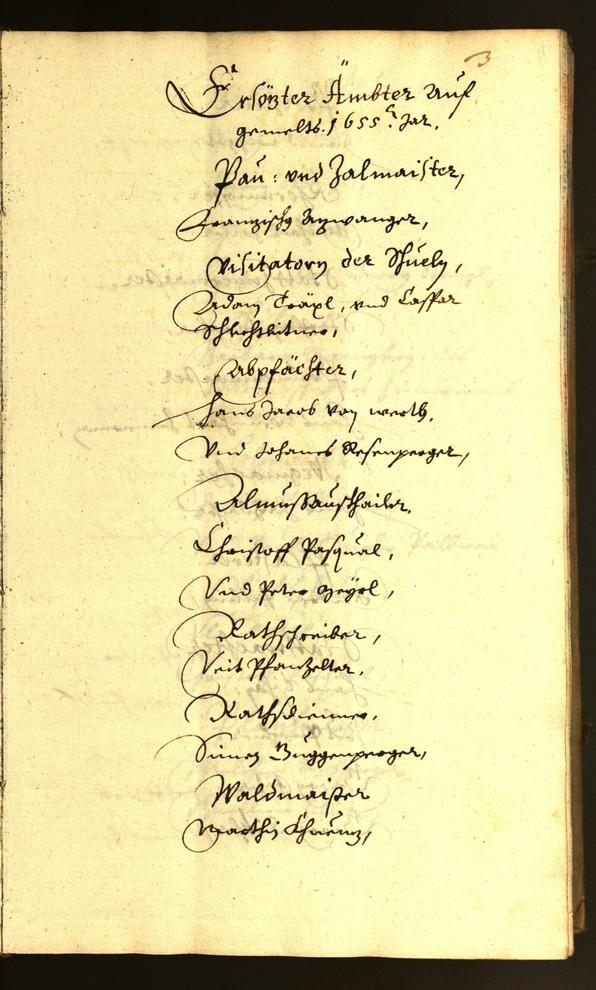 3
Ersözter Ämbter Auf
gemelts. 1655. Jar.
Pau: und Zalmaister,
Franzisch Anwanger,
Visitatorn der Schueln,
Adam Träxl, und Casspar
Schlechtleitner,
Abpfächter,
Hans Jacob von werth,
Und Johanes Rosenperger,
Almussausthailer,
Christoff Pasqual,
Und Peter Geyrl,
Rathschreiber,
Veit Pfanzelter,
Rathsdienner,
Simon Buggenperger,
Waldmaister
Marthin